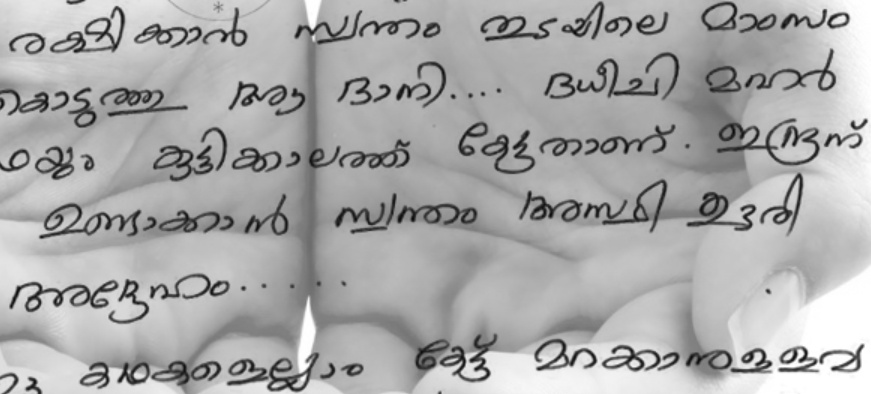 രക്ഷിക്കാൻ സ്വന്തം തുടയിലെ മാംസം
കൊടുത്ത ആ ദാനി.... ദധീചി മഹർ
കുട്ടിക്കാലത്ത് കേട്ടതാണ്. ഇന്ദ്രന്
ഉണ്ടാക്കാൻ സ്വന്തം അസ്ഥി ഊരി
അദ്ദേഹം......
കഥകളെല്ലാം കേട്ട് മറക്കാനുള്ളവ